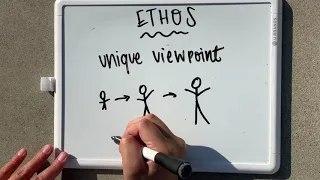 ETHOS
unique viewpoint